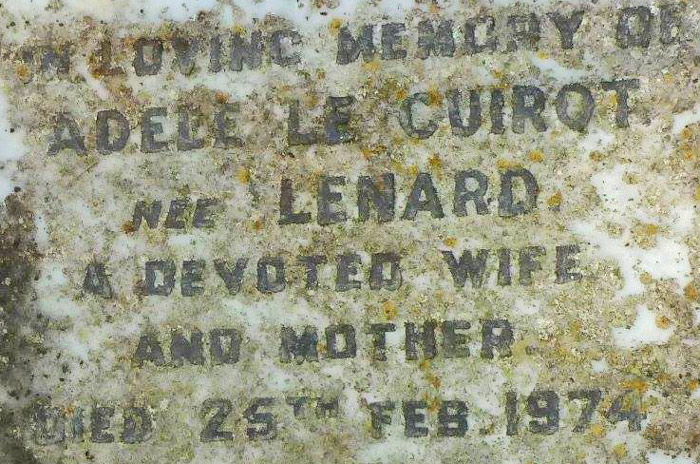 IN LOVING MEMORY OF
ADELE LE CUIROT
NEE LENARD.
A DEVOTED WIFE
AND MOTHER.
DIED 25TH FEB. 1974